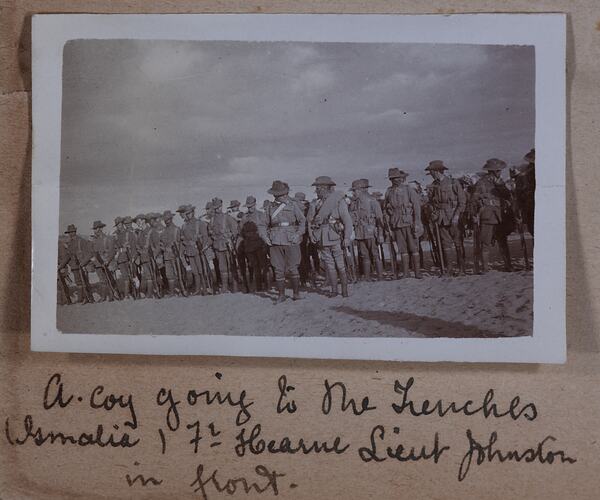 A. coy going to the Trenches
(Ismalia) 7r Hearne Lieut Johnston
in front.